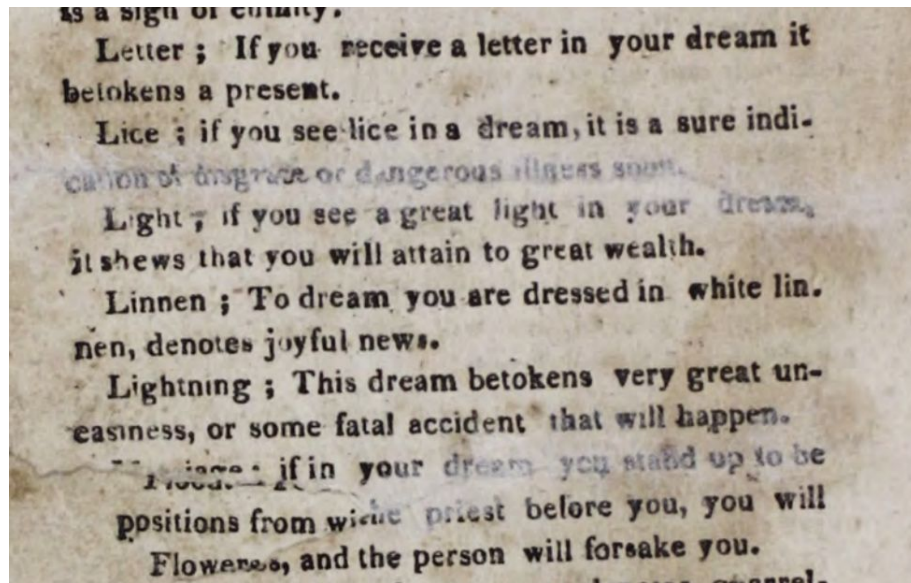 as a sign of enmity.
Letter ; If you receive a letter in your dream it
betokens a present.
Lice ; if you see lice in a dream, it is a sure indi-
cation of disgrace or dangerous illness soon.
Light ; if you see a great light in your dream,
it shews that you will attain to great wealth.
Linnen ; To dream you are dressed in white lin.
nen, denotes joyful news.
Lightning ; This dream betokens very great un-
easiness, or some fatal accident that will happen.
if in your dream you stand up to be
positions from priest before you, you will
Flowe and the person will forsake you.
quarrel-